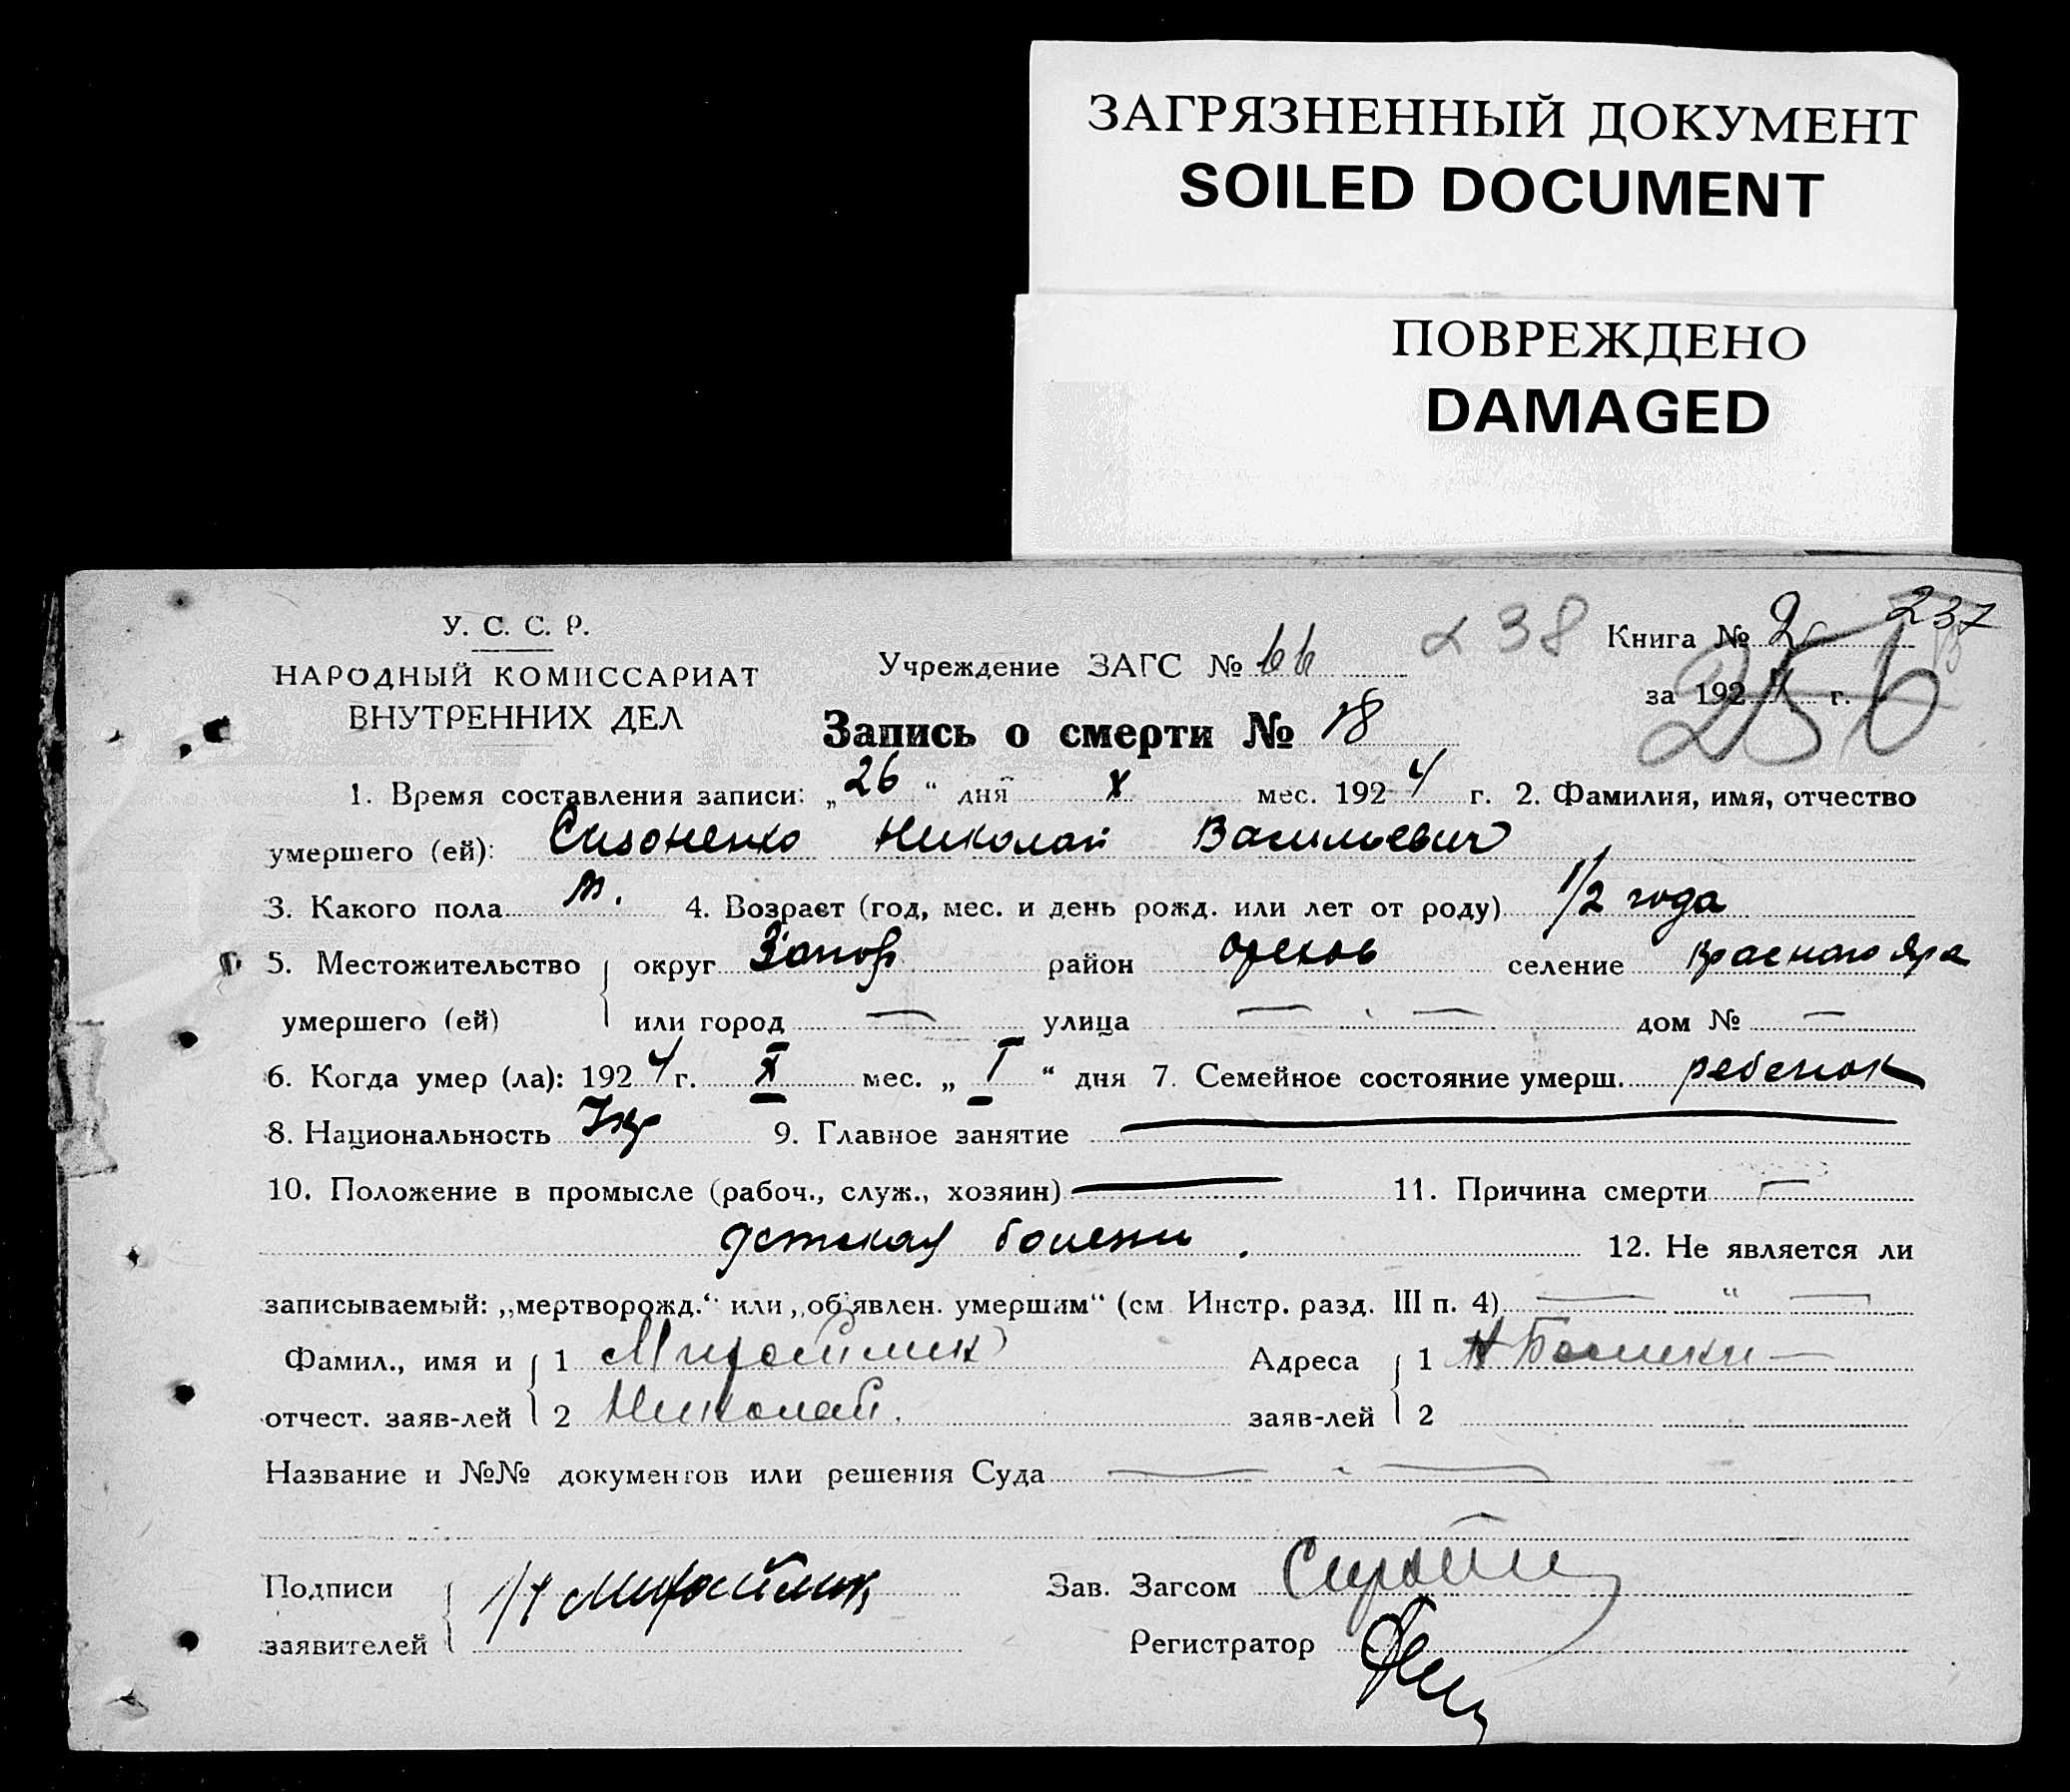 ЗАГРЯЗНЕННЫЙ ДОКУМЕНТ
SOILED DOCUMENT
ПОВРЕЖДЕНО
DAMAGED
У. С. С. Р.
НАРОДНЫЙ КОМИССАРИАТ
ВНУТРЕННИХ ДЕЛ
Учреждение ЗАГС № 66
238
Книга № 2
237
256
за 1924 г.
Запись о смерти № 18
1. Время составления записи: „26“ дня X мес. 1924 г. 2. Фамилия, имя, отчество
умершего (ей): Сизоненко Николай Васильевич
3. Какого пола м. 4. Возраст (год, мес. и день рожд. или лет от роду) 1/2 года
5. Местожительство округ Запор район Орехов селение Красного Яра
умершего (ей) или город — улица — дом № —
6. Когда умер (ла): 1924 г. X мес. „I“ дня 7. Семейное состояние умерш. ребенок
8. Национальность Укр 9. Главное занятие —
10. Положение в промысле (рабоч., служ., хозяин) — 11. Причина смерти —
детская болезнь. 12. Не является ли
записываемый: „мертворожд.“ или „об'явлен. умершим“ (см. Инстр. разд. III п. 4) — " —
Фамил., имя и 1 Адреса 1
отчест. заяв-лей 2 Николай. заяв-лей 2
Название и №№ документов или решения Суда —
Подписи Зав. Загсом
заявителей Регистратор